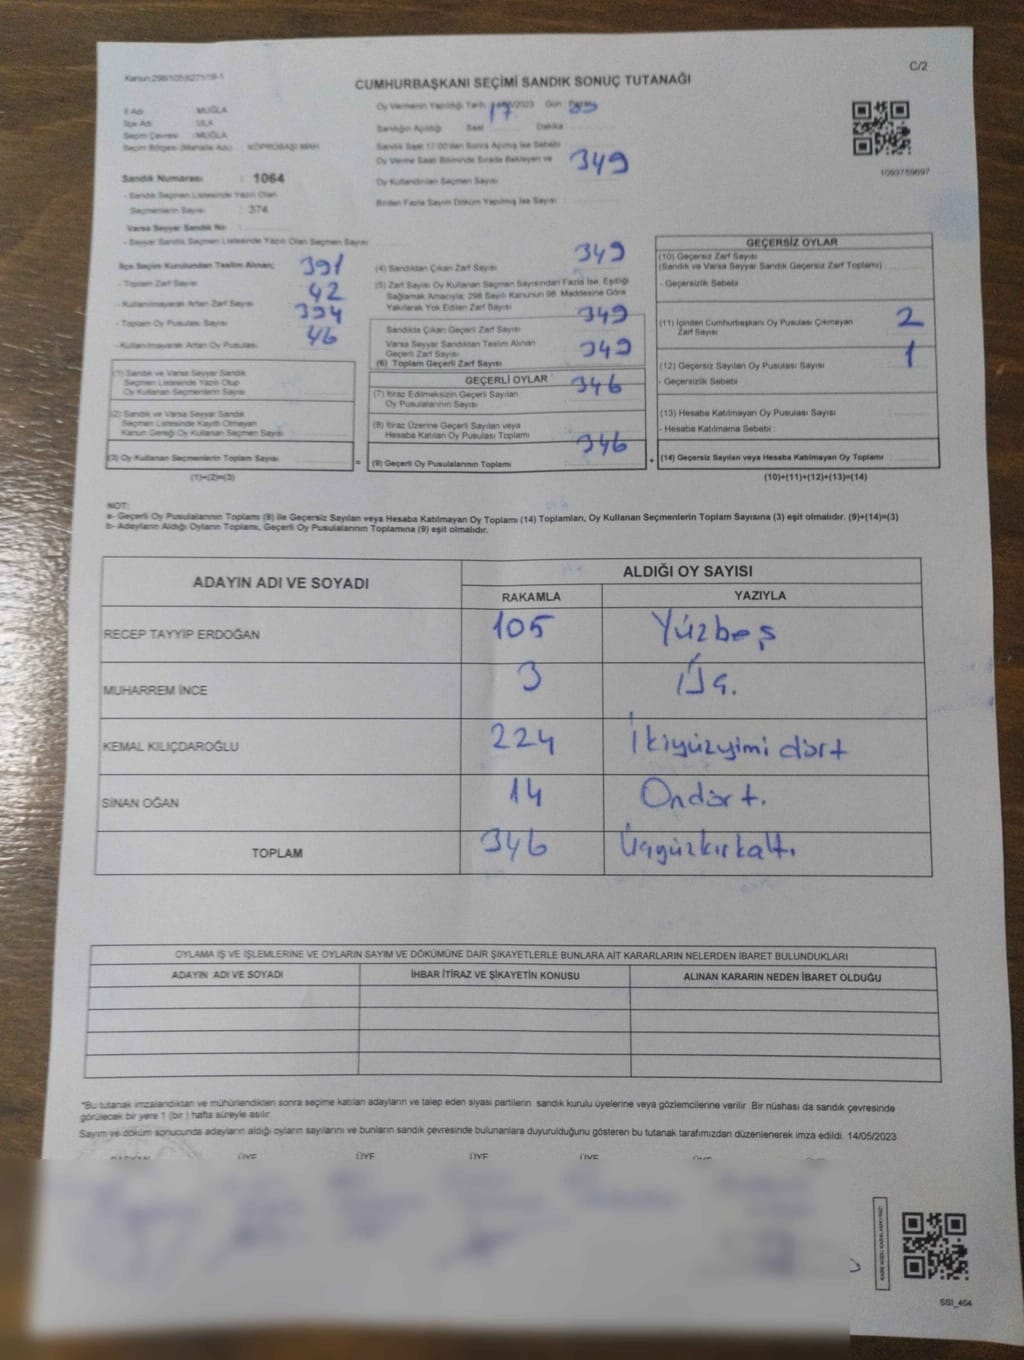 Kanun:298/105;6271/19-1
C/2
CUMHURBAŞKANI SEÇİMİ SANDIK SONUÇ TUTANAĞI
İl Adı : MUĞLA
İlçe Adı : ULA
Seçim Çevresi : MUĞLA
Seçim Bölgesi (Mahalle Adı) : KÖPRÜBAŞI MAH.
Sandık Numarası : 1064
- Sandık Seçmen Listesinde Yazılı Olan
Seçmenlerin Sayısı : 374
Varsa Seyyar Sandık No :
- Seyyar Sandık Seçmen Listesinde Yazılı Olan Seçmen Sayısı
Oy Vermenin Yapıldığı Tarih /2023 Gün
Sandığın Açıldığı Saat 17 Dakika 05
Sandık Saat 17:00'dan Sonra Açılmış İse Sebebi
Oy Verme Saati Bitiminde Sırada Bekleyen ve
Oy Kullandırılan Seçmen Sayısı 349
Birden Fazla Sayım Döküm Yapılmış İse Sayısı
1093759697
İlçe Seçim Kurulundan Teslim Alınan;
- Toplam Zarf Sayısı 391
- Kullanılmayarak Artan Zarf Sayısı 42
- Toplam Oy Pusulası Sayısı 394
- Kullanılmayarak Artan Oy Pusulası 46
(1) Sandık ve Varsa Seyyar Sandık
Seçmen Listesinde Yazılı Olup
Oy Kullanan Seçmenlerin Sayısı
(2) Sandık ve Varsa Seyyar Sandık
Seçmen Listesinde Kayıtlı Olmayan
Kanun Gereği Oy Kullanan Seçmen Sayısı
(3) Oy Kullanan Seçmenlerin Toplam Sayısı
(1)+(2)=(3)
(4) Sandıktan Çıkan Zarf Sayısı 349
(5) Zarf Sayısı Oy Kullanan Seçmen Sayısından Fazla İse, Eşitliği
Sağlamak Amacıyla; 298 Sayılı Kanunun 98. Maddesine Göre
Yakılarak Yok Edilen Zarf Sayısı
Sandıkta Çıkan Geçerli Zarf Sayısı 349
Varsa Seyyar Sandıktan Teslim Alınan
Geçerli Zarf Sayısı
(6) Toplam Geçerli Zarf Sayısı 349
GEÇERLİ OYLAR
(7) İtiraz Edilmeksizin Geçerli Sayılan
Oy Pusulalarının Sayısı 346
(8) İtiraz Üzerine Geçerli Sayılan veya
Hesaba Katılan Oy Pusulası Toplamı
(9) Geçerli Oy Pusulalarının Toplamı 346
GEÇERSİZ OYLAR
(10) Geçersiz Zarf Sayısı
(Sandık ve Varsa Seyyar Sandık Geçersiz Zarf Toplamı)
- Geçersizlik Sebebi
(11) İçinden Cumhurbaşkanı Oy Pusulası Çıkmayan
Zarf Sayısı 2
(12) Geçersiz Sayılan Oy Pusulası Sayısı 1
- Geçersizlik Sebebi :
(13) Hesaba Katılmayan Oy Pusulası Sayısı
- Hesaba Katılmama Sebebi :
(14) Geçersiz Sayılan veya Hesaba Katılmayan Oy Toplamı
(10)+(11)+(12)+(13)=(14)
NOT:
a- Geçerli Oy Pusulalarının Toplamı (9) ile Geçersiz Sayılan veya Hesaba Katılmayan Oy Toplamı (14) Toplamları, Oy Kullanan Seçmenlerin Toplam Sayısına (3) eşit olmalıdır. (9)+(14)=(3)
b- Adayların Aldığı Oyların Toplamı, Geçerli Oy Pusulalarının Toplamına (9) eşit olmalıdır.
ADAYIN ADI VE SOYADI ALDIĞI OY SAYISI
RAKAMLA YAZIYLA
RECEP TAYYİP ERDOĞAN 105 Yüzbeş
MUHARREM İNCE 3 Üç.
KEMAL KILIÇDAROĞLU 224 İkiyüzyimi dört
SİNAN OĞAN 14 Ondört.
TOPLAM 346 Üçyüzkırkaltı
OYLAMA İŞ VE İŞLEMLERİNE VE OYLARIN SAYIM VE DÖKÜMÜNE DAİR ŞİKAYETLERLE BUNLARA AİT KARARLARIN NELERDEN İBARET BULUNDUKLARI
ADAYIN ADI VE SOYADI İHBAR İTİRAZ VE ŞİKAYETİN KONUSU ALINAN KARARIN NEDEN İBARET OLDUĞU
"Bu tutanak imzalandıktan ve mühürlendikten sonra seçime katılan adayların ve talep eden siyasi partilerin sandık kurulu üyelerine veya gözlemcilerine verilir. Bir nüshası da sandık çevresinde
görülecek bir yere 1 (bir) hafta süreyle asılır.
Sayım ve döküm sonucunda adayların aldığı oyların sayılarını ve bunların sandık çevresinde bulunanlara duyurulduğunu gösteren bu tutanak tarafımızdan düzenlenerek imza edildi. 14/05/2023
BAŞKAN ÜYE ÜYE ÜYE ÜYE ÜYE
SSI_404